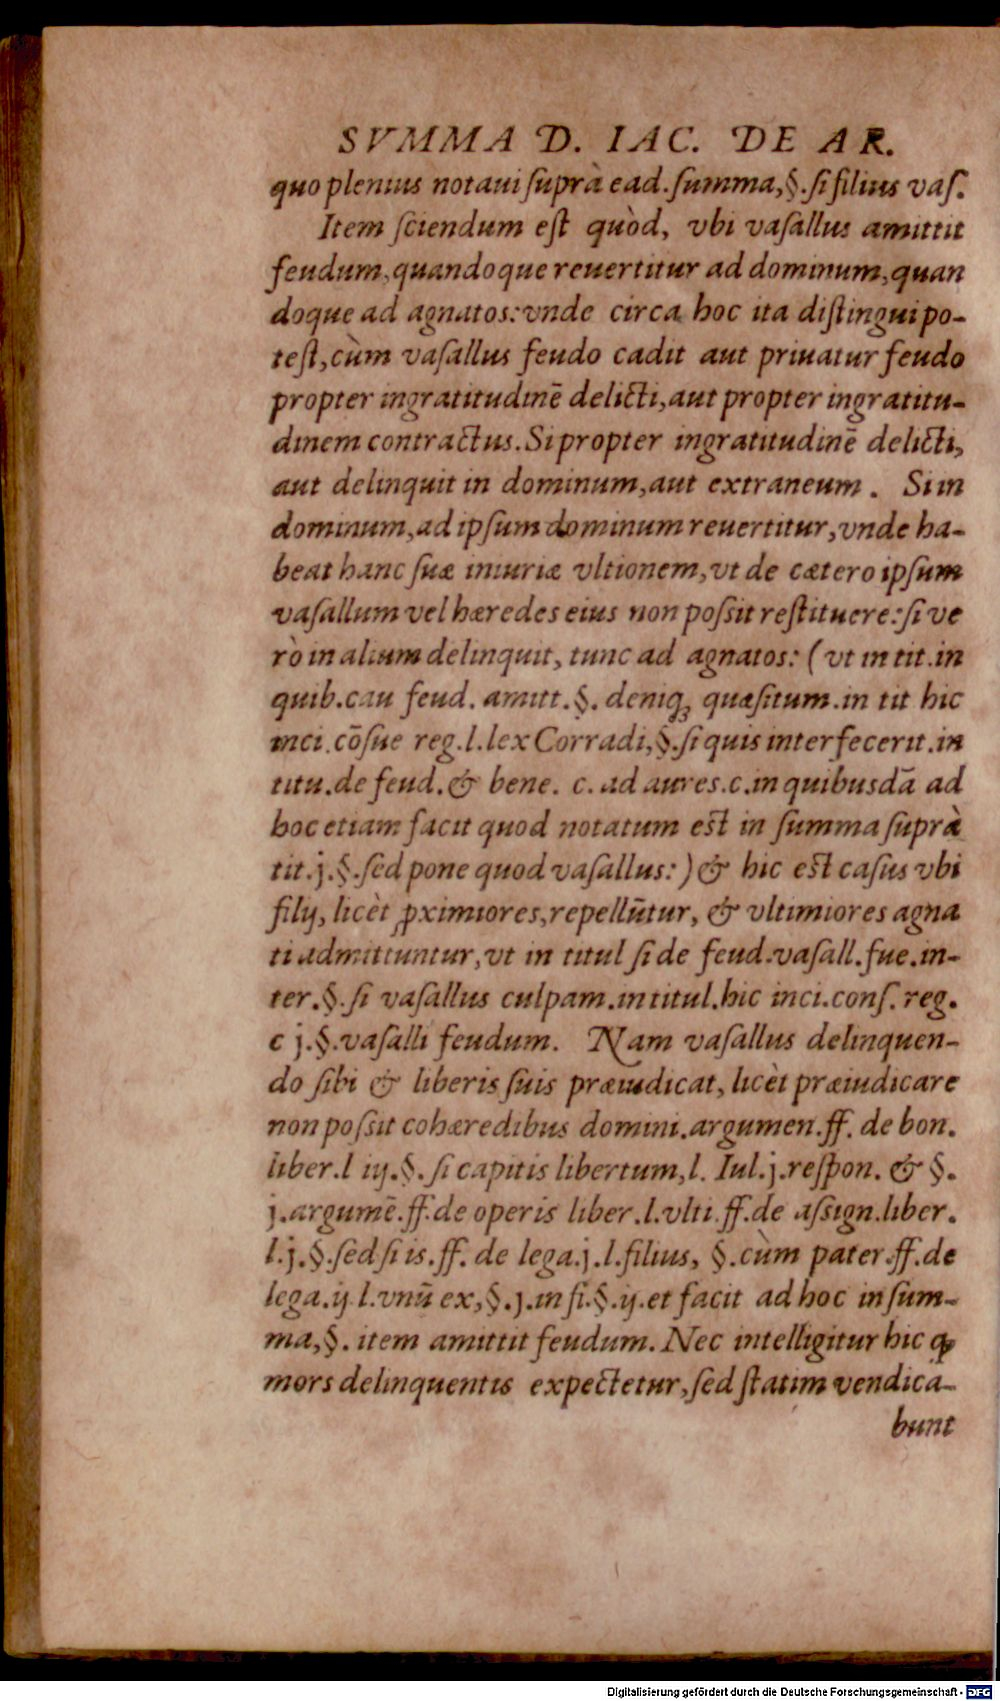 SVMMA D. IAC. DE AR.
quo plenius notaui suprà ead. summa, §. si filius vas.
Item sciendum est quòd, vbi vasallus amittit
feudum, quandoque reuertitur ad dominum, quan
doque ad agnatos: vnde circa hoc ita distingui po-
test, cùm vasallus feudo cadit aut priuatur feudo
propter ingratitudinē delicti, aut propter ingratitu-
dinem contractus. Si propter ingratitudinē delicti,
aut delinquit in dominum, aut extraneum. Si in
dominum, ad ipsum dominum reuertitur, vnde ha-
beat hanc suæ iniuriæ vltionem, vt de cætero ipsum
vasallum vel hæredes eius non possit restituere: si ve
rò in alium delinquit, tunc ad agnatos: (vt in tit. in
quib. cau feud. amitt. §. deniq; quæsitum. in tit hic
inci. cōsue reg. l. lex Corradi, §. si quis interfecerit. in
titu. de feud. & bene. c. ad aures. c. in quibusdā ad
hoc etiam facit quod notatum est in summa suprà
tit. j. §. sed pone quod vasallus:) & hic est casus vbi
filij, licèt ꝓximiores, repellūtur, & vltimiores agna
ti admittuntur, vt in titul si de feud. vasall. fue. in-
ter. §. si vasallus culpam. in titul. hic inci. cons. reg.
c j. §. vasalli feudum. Nam vasallus delinquen-
do sibi & liberis suis præiudicat, licèt præiudicare
non possit cohæredibus domini. argumen. ff. de bon.
liber. l iij. §. si capitis libertum, l. Iul. j. respon. & §.
j. argumē. ff. de operis liber. l. vlti. ff. de assign. liber.
l. j. §. sed si is. ff. de lega. j. l. filius, §. cùm pater. ff. de
lega. ij l. vnū ex, §. j. in fi. §. ij. et facit ad hoc in sum-
ma, §. item amittit feudum. Nec intelligitur hic ꝙ
mors delinquentis expectetur, sed statim vendica-
bunt
Digitalisierung gefördert durch die Deutsche Forschungsgemeinschaft - DFG